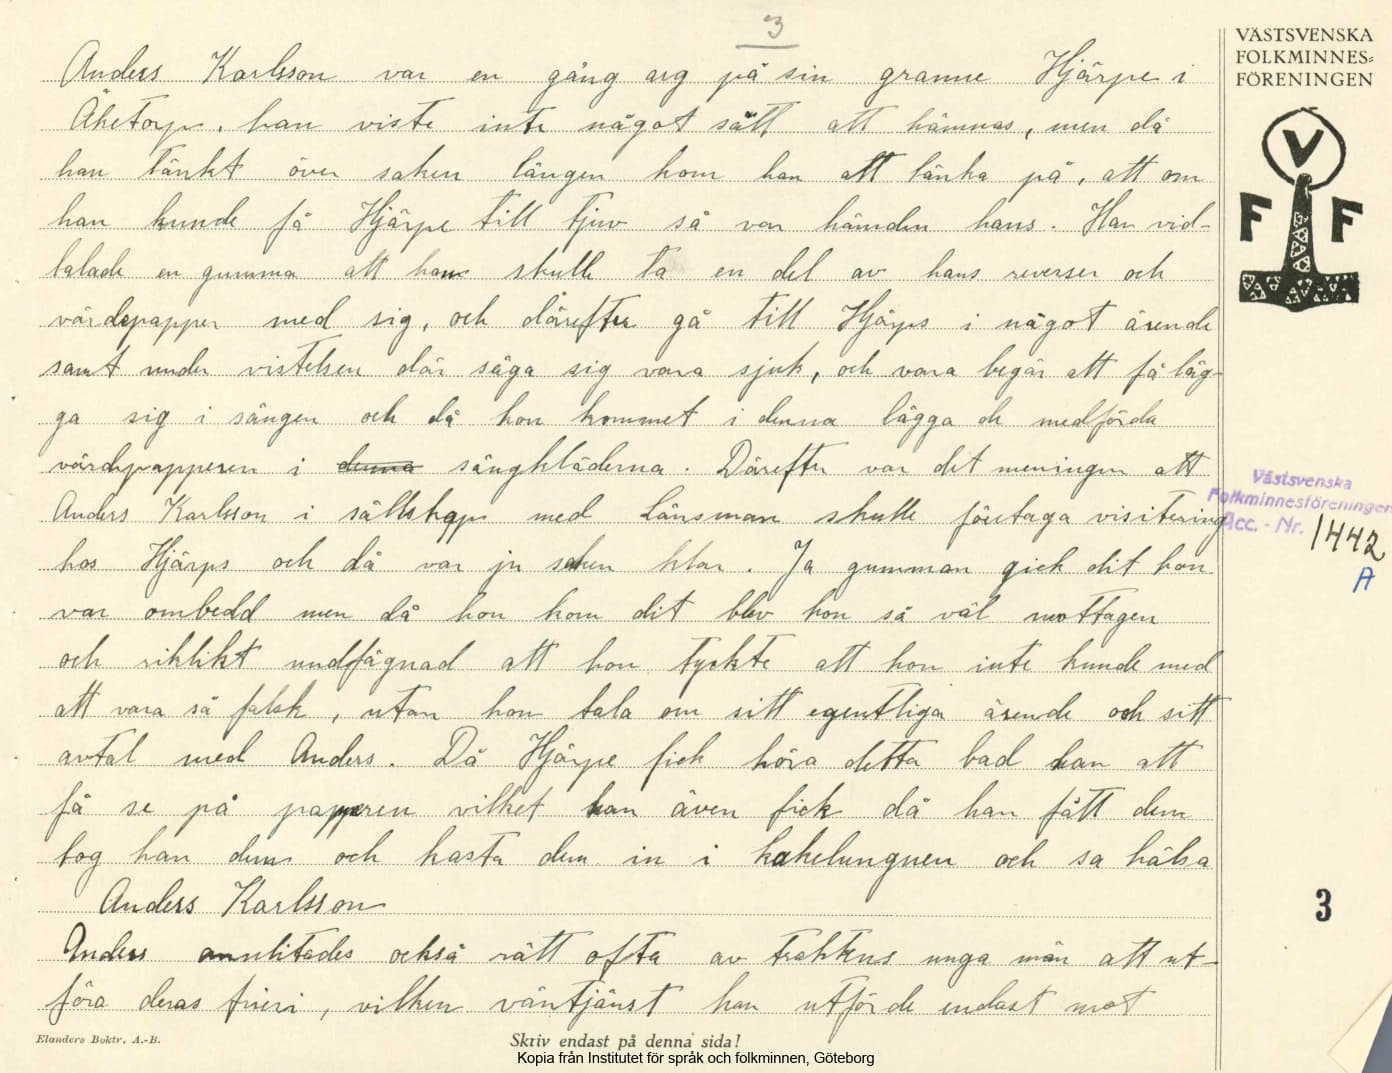 3
Anders Karlsson var en gång arg på sin granne Hjärpe i
Åketorp, han viste inte något sätt att hämnas, men då
han tänkt över saken längen kom han att tänka på, att om
han kunde få Hjärpe till tjuv så var hämden hans. Han vid-
talade en gumma att hon skulle ta en del av hans reverser och
värdepapper med sig, och därefter gå till Hjärps i något ärende
samt under vistelsen där säga sig vara sjuk, och vara begär att få läg-
ga sig i sängen och då hon kommet i denna lägga de medförda
värdepapperen i denna sängkläderna. Därefter var det meningen att
Anders Karlsson i sällskap med Länsman skulle företaga visitering
hos Hjärps och då var ju saken klar. Ja gumman gick dit hon
var ombedd men då hon kom dit blev hon så väl mottagen
och riklikt undfägnad att hon tyckte att hon inte kunde med
att vara så falsk, utan hon tala om sitt egentliga ärende och sitt
avtal med Anders. Då Hjärpe fick höra detta bad han att
få se på papperen vilket han även fick då han fått dem
tog han dem och kasta dem in i kakelungnen och sa hälsa
Anders Karlsson
Anders anlitades också rätt ofta av traktens unga män att ut-
föra deras frieri, vilken väntjänst han utförde endast mot
VÄSTSVENSKA
FOLKMINNES-
FÖRENINGEN
V
F F
Västsvenska
Folkminnesföreningen
Acc. - Nr. 1442
A
3
Elanders Boktr. A.-B.
Skriv endast på denna sida!
Kopia från Institutet för språk och folkminnen, Göteborg